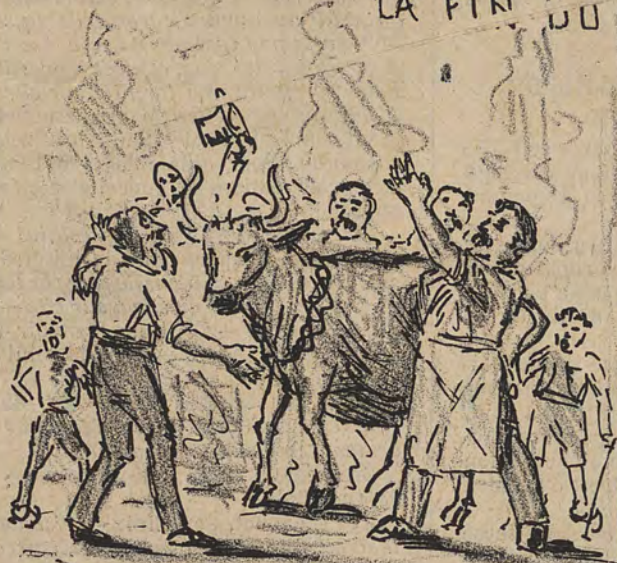 LA FIN DU